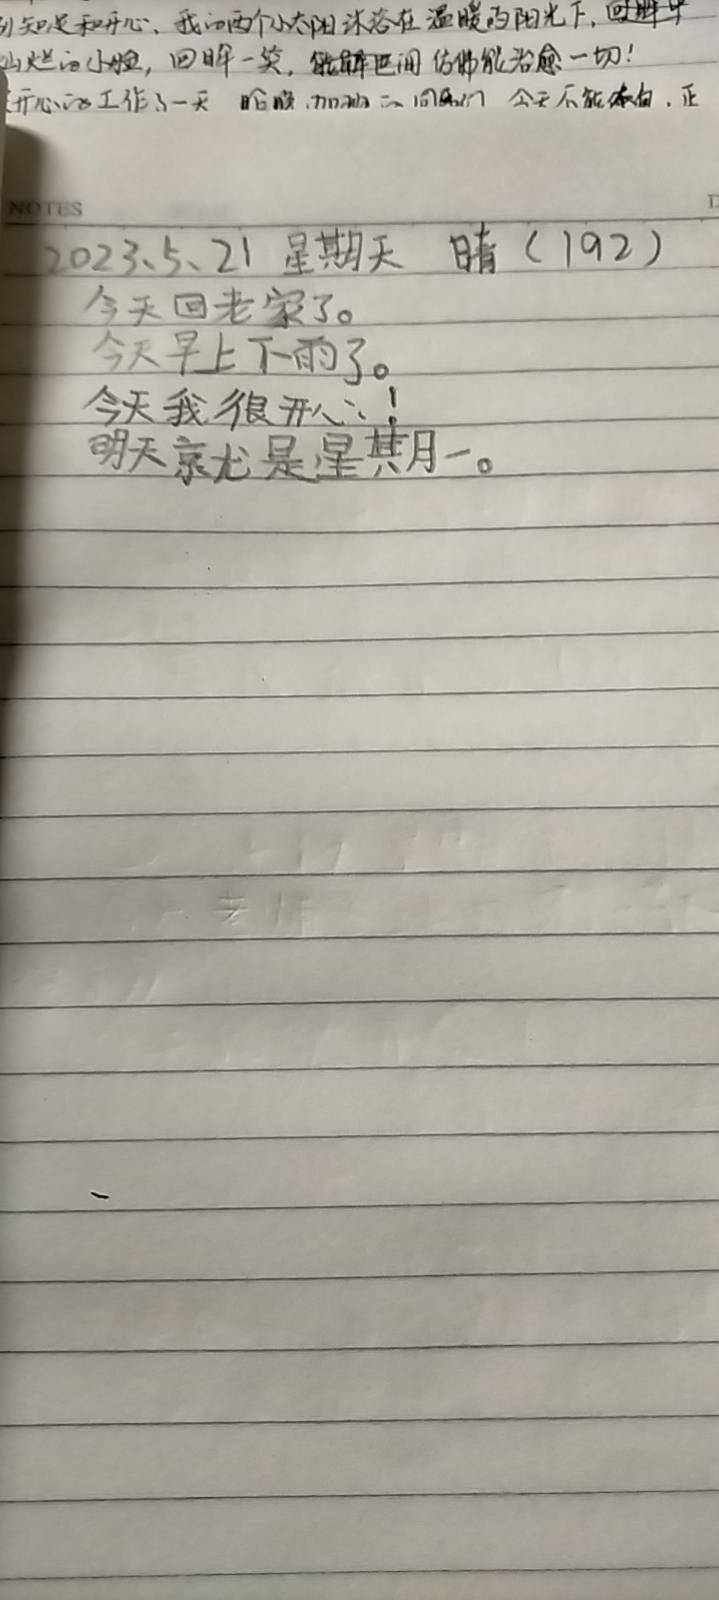 知足和开心,我的两个小太阳沐浴在温暖的阳光下,
灿烂的小脸,回眸一笑,间仿佛能治愈一切!
开心的工作了一天 加班的同事们 今天不能休息,正
NOTES
2023、5、21 星期天 晴(192)
今天回老家了。
今天早上下雨了。
今天我很开心!
明天就是星期一。